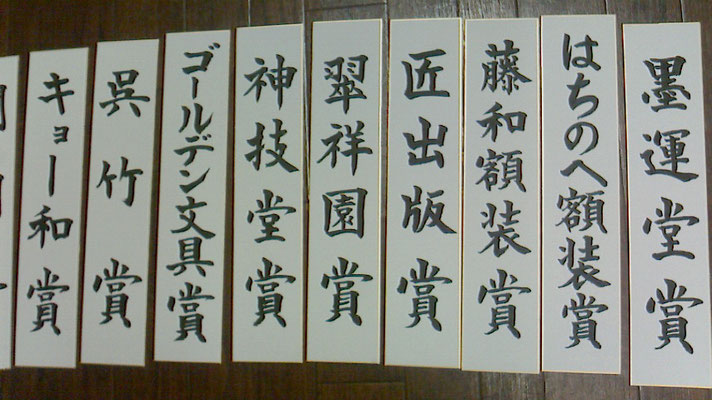 墨運堂賞
はちのへ額装賞
藤和額装賞
匠出版賞
翠祥園賞
神技堂賞
ゴールデン文具賞
呉竹賞
キョー和賞